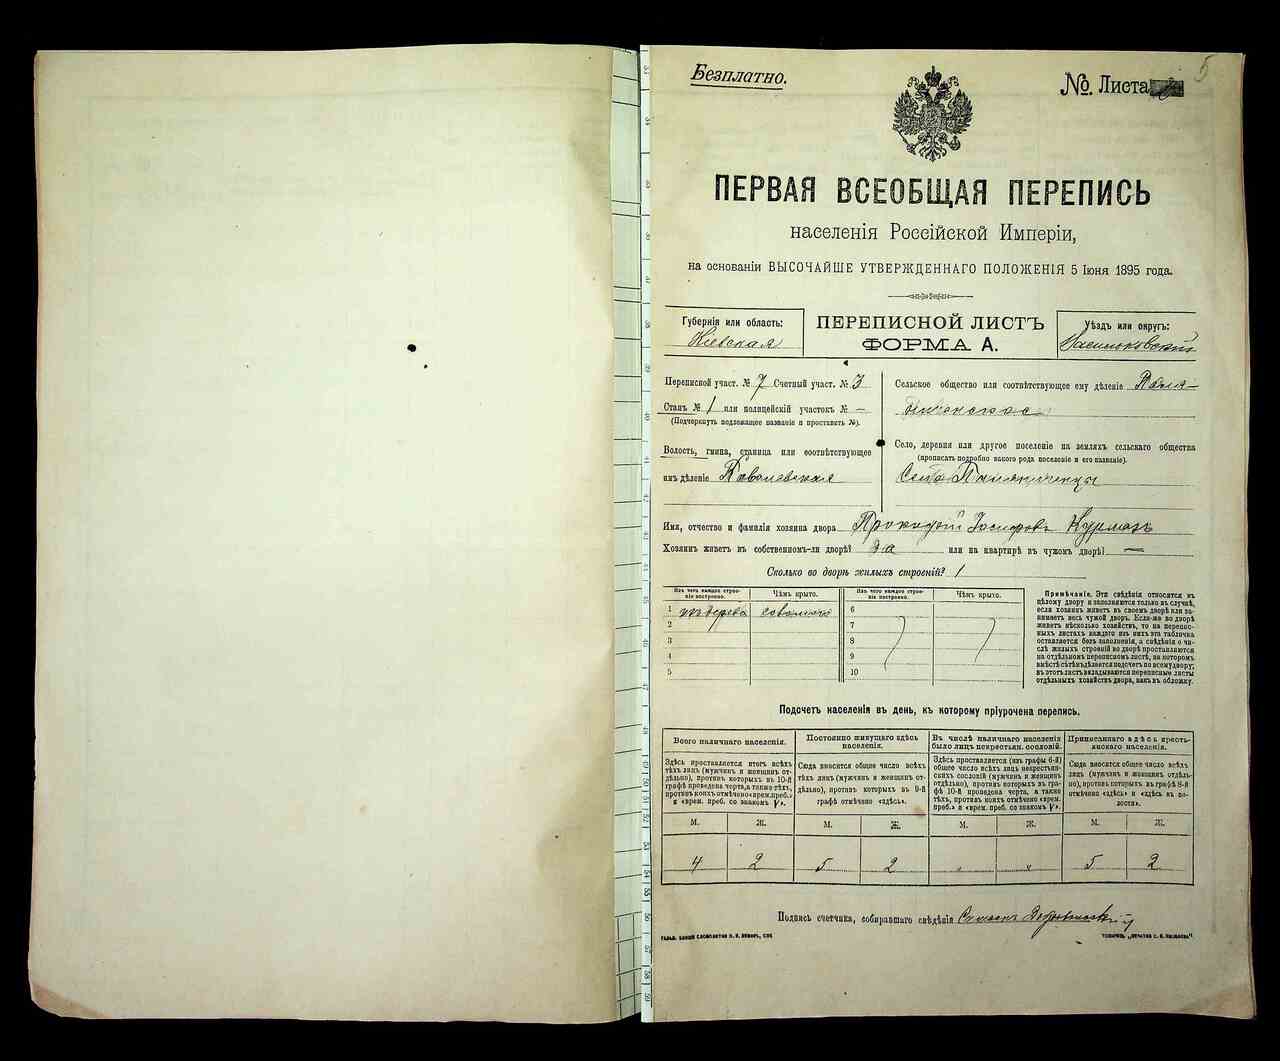 Безплатно.
№. Листа
5
ПЕРВАЯ ВСЕОБЩАЯ ПЕРЕПИСЬ
населенія Россійской Имперіи,
на основаніи ВЫСОЧАЙШЕ УТВЕРЖДЕННАГО ПОЛОЖЕНІЯ 5 Іюня 1895 года.
Губернія или область:
Кіевская
ПЕРЕПИСНОЙ ЛИСТЪ
ФОРМА А.
Уѣздъ или округъ:
Васильковскій
Переписной участ. № 7 Счетный участ. № 3
Станъ № 1 или полицейскій участокъ № —
(Подчеркнуть подлежащее названіе и проставить №).
Волость, гмина, станица или соотвѣтствующее
имъ дѣленіе Ковалевская
Сельское общество или соотвѣтствующее ему дѣленіе
Село, деревня или другое поселеніе на земляхъ сельскаго общества
(прописать подробно какого рода поселеніе и его названіе).
Село Паляничинцы
Имя, отчество и фамилія хозяина двора Прокофій Іосифовъ Курмазъ
Хозяинъ живетъ въ собственномъ-ли дворѣ? да или на квартирѣ въ чужомъ дворѣ? —
Сколько во дворѣ жилыхъ строеній? 1
Изъ чего каждое строеніе построено.
Чѣмъ крыто.
Изъ чего каждое строеніе построено.
Чѣмъ крыто.
1 изъ дерева соломой 6
2 7
3 8
4 9
5 10
Примѣчаніе. Эти свѣдѣнія относятся къ
цѣлому двору и заполняются только въ случаѣ,
если хозяинъ живетъ въ своемъ дворѣ или занимаетъ
весь чужой дворъ. Если-же во дворѣ
живетъ нѣсколько хозяйствъ, то на переписныхъ
листахъ каждаго изъ нихъ эта табличка
оставляется безъ заполненія, а свѣдѣнія о числѣ
жилыхъ строеній во дворѣ проставляются
на отдѣльномъ переписномъ листѣ, на которомъ
вмѣстѣ съ тѣмъ дѣлается подсчетъ по всему двору;
въ этотъ листъ вкладываются переписные листы
отдѣльныхъ хозяйствъ двора, какъ въ обложку.
Подсчетъ населенія въ день, къ которому пріурочена перепись.
Всего наличнаго населенія.
Здѣсь проставляется итогъ всѣхъ
тѣхъ лицъ (мужчинъ и женщинъ отдѣльно),
противъ которыхъ въ 10-й
графѣ проведена черта, а также тѣхъ,
противъ коихъ отмѣчено «врем. преб.»
и «врем. преб. со знакомъ V».
Постоянно живущаго здѣсь
населенія.
Сюда вносится общее число всѣхъ
тѣхъ лицъ (мужчинъ и женщинъ отдѣльно),
противъ которыхъ въ 9-й
графѣ отмѣчено «здѣсь».
Въ числѣ наличнаго населенія
было лицъ некрестьян. сословій.
Здѣсь проставляется (изъ графы 6-й)
общее число всѣхъ лицъ некрестьянскихъ
сословій (мужчинъ и женщинъ
отдѣльно), противъ которыхъ въ графѣ
10-й проведена черта, а также
тѣхъ, противъ коихъ отмѣчено «врем.
преб.» и «врем. преб. со знакомъ V».
Приписаннаго здѣсь крестьянскаго
населенія.
Сюда вносится общее число всѣхъ
лицъ (мужчинъ и женщинъ отдѣльно),
противъ которыхъ въ графѣ 8-й
отмѣчено «здѣсь» и «здѣсь въ волости».
М. Ж. М. Ж. М. Ж. М. Ж.
4 2 5 2 „ „ 5 2
Подпись счетчика, собиравшаго свѣдѣнія